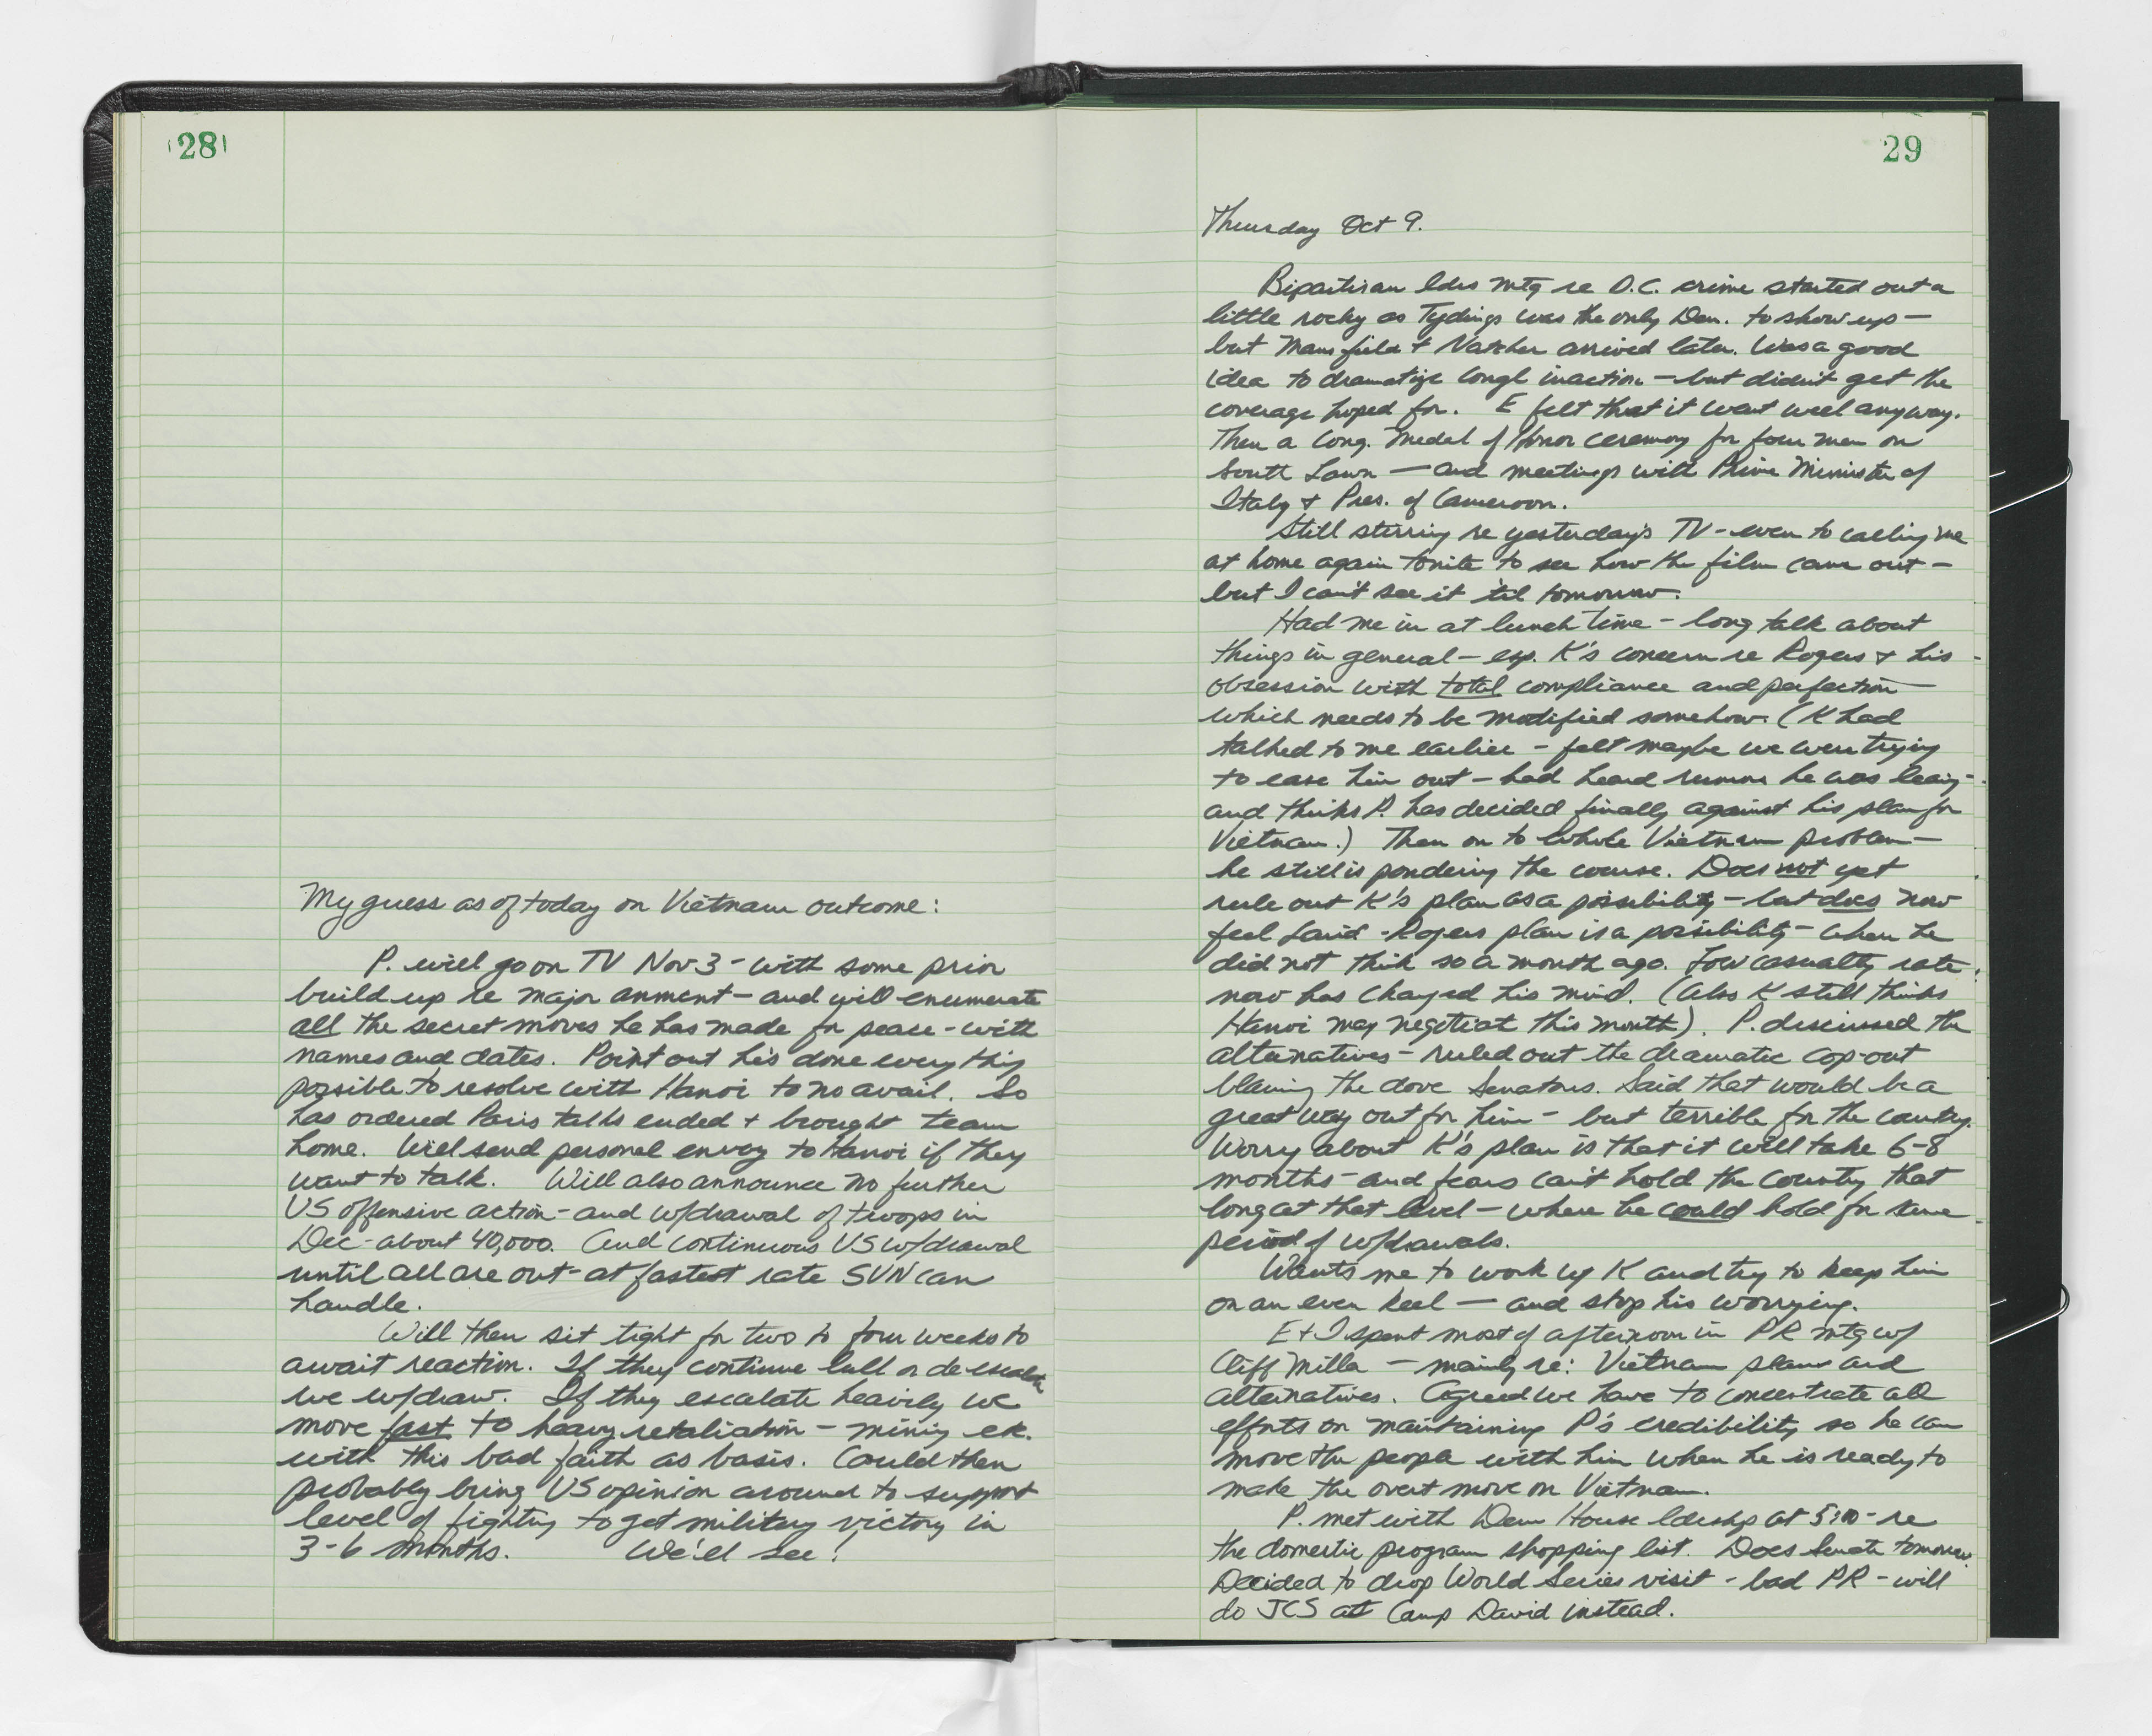 28
My guess as of today on Vietnam outcome:
P. will go on TV Nov 3 - with some prior
build up re major anment - and will enumerate
all the secret moves he has made for peace - with
names and dates. Point out he's done everything
possible to resolve with Hanoi to no avail. So
has ordered Paris talks ended + brought team
home. Will send personal envoy to Hanoi if they
want to talk. Will also announce no further
US offensive action - and w/drawal of troops in
Dec - about 40,000. And continuous US w/drawal
until all are out - at fastest rate SVN can
handle.
Will then sit tight for two to four weeks to
await reaction. If they continue lull or de-escalate
we w/draw. If they escalate heavily we
move fast to heavy retaliation - mining etc.
with this bad faith as basis. Could then
probably bring US opinion around to support
level of fighting to get military victory in
3-6 months. We'll see!
29
Thursday Oct 9.
Bipartisan ldrs mtg re D.C. crime started out a
little rocky as Tydings was the only Dem. to show up -
but Mansfield + Natcher arrived later. Was a good
idea to dramatize congl inaction - but didn't get the
coverage hoped for. E felt that it went well anyway.
Then a long Medal of Honor ceremony for four men on
South Lawn - and meetings with Prime Minister of
Italy + Pres. of Cameroon.
Still stirring re yesterday's TV - even to calling me
at home again tonite to see how the film came out -
but I can't see it 'til tomorrow.
Had me in at lunch time - long talk about
things in general - esp. K's concern re Rogers + his
obsession with total compliance and perfection -
which needs to be modified somehow. (K had
talked to me earlier - felt maybe we were trying
to ease him out - had heard rumors he was leaving -
and thinks P. has decided finally against his plan for
Vietnam.) Then on to whole Vietnam problem -
he still is pondering the course. Does not yet
rule out K's plan as a possibility - but does now
feel Laird-Rogers plan is a possibility - when he
did not think so a month ago. Low casualty rate
now has changed his mind. (Also K still thinks
Hanoi may negotiate this month). P. discussed the
alternatives - ruled out the dramatic cop-out
blaming the dove Senators. Said that would be a
great way out for him - but terrible for the country.
Worry about K's plan is that it will take 6-8
months - and fears can't hold the country that
long at that level - where he could hold for some
period of w/drawals.
Wants me to work up K and try to keep him
on an even keel - and stop his worrying.
E + I spent most of afternoon in PR mtg w/
Cliff Miller - mainly re: Vietnam plans and
alternatives. Agreed we have to concentrate all
efforts on maintaining P's credibility so he can
move the people with him when he is ready to
make the overt move on Vietnam.
P. met with Dem House ldrship at 5:00 - re
the domestic program shopping list. Does Senate tomorrow.
Decided to drop World Series visit - bad PR - will
do JCS at Camp David instead.